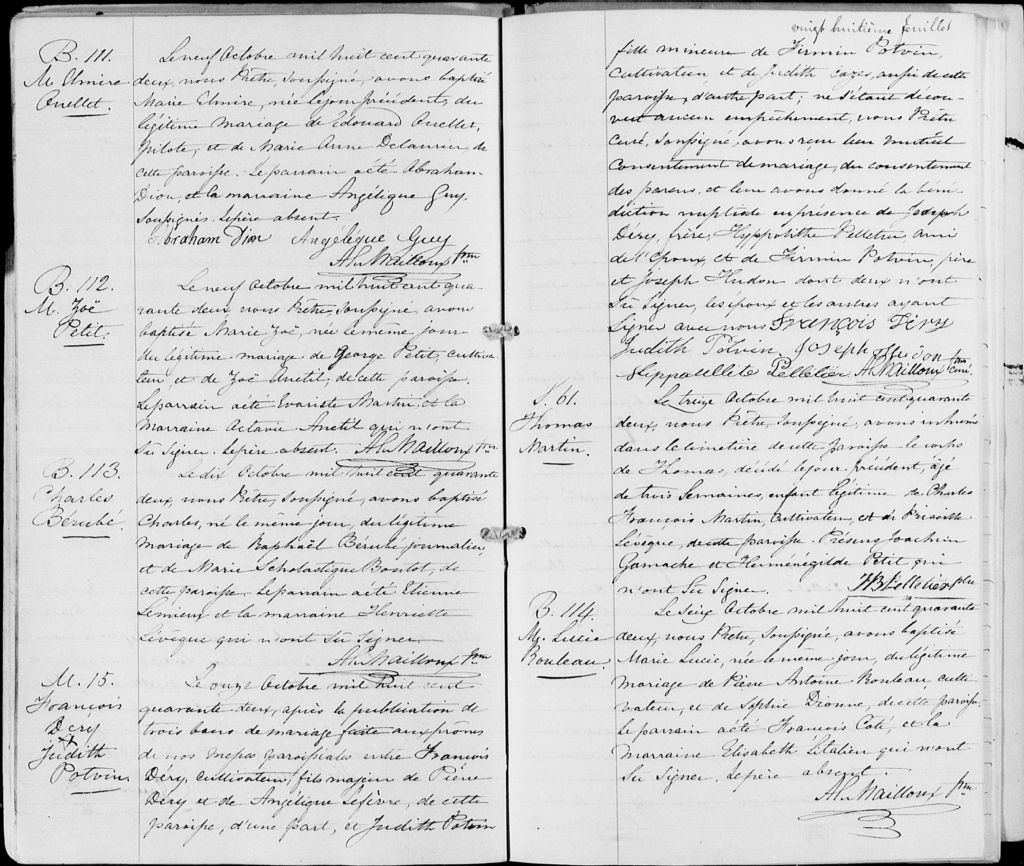 B. 111.
M. Elmire
Ouellet.
Le neuf Octobre mil huit cent quarante
deux, nous Prêtre, Soussigné, avons baptisé
Marie Elmire, née le jour précédent, du
légitime mariage de Edouard Ouellet,
pilote, et de Marie Anne Delaurier de
cette paroisse. Le parrain a été Abraham
Dion, et la marraine Angélique Guy,
Soussignés. Le père absent.
Abraham Dion Angélique Guy
Alx Mailloux Ptre
B. 112.
M. Zoë
Petit.
Le neuf Octobre mil huit cent qua-
rante deux, nous Prêtre, Soussigné avons
baptisé Marie Zoë, née le même jour
du légitime mariage de George Petit, cultiva
teur et de Zoë Anctil, de cette paroisse.
Le parrain a été Evariste Martin, et la
marraine Octavie Anctil qui n'ont
Su Signer. Le père absent. Alx Mailloux Ptre
B. 113.
Charles
Bérubé.
Le dix Octobre mil huit cent quarante
deux, nous Prêtre, Soussigné, avons baptisé
Charles, né le même jour, du légitime
mariage de Raphaël Bérubé, journalier,
et de Marie Scholastique Boulet, de
cette paroisse. Le parrain a été Etienne
Lemieux et la marraine Henriette
Lévêque qui n'ont Su Signer.
Alx Mailloux Ptre
M. 15.
François
Dery
&
Judith
Potvin.
Le onze Octobre mil huit cent
quarante deux, après la publication de
trois bans de mariage faite aux prônes
de nos messes paroissiales entre François
Déry, cultivateur, fils majeur de Pierre
Déry et de Angélique Lefèvre, de cette
paroisse, d'une part, et Judith Potvin
vingt huitième feuillet
fille mineure de Firmin Potvin,
Cultivateur et de Judith Cazes, aussi de cette
paroisse, d'autre part; ne s'étant décou-
vert aucun empêchement, nous Prêtre
Curé, Soussigné, avons reçu leur mutuel
Consentement de mariage, du consentement
des parens, et leur avons donné la béné
diction nuptiale en présence de Joseph
Déry, frère, Hyppolithe Pelletier, ami
de l'Epoux, et de Firmin Potvin, père
et Joseph Hudon dont deux n'ont
Su Signer, les époux et les autres ayant
Signer avec nous François Déry
Judith Potvin. Joseph Hudon
Hippollite Pelletier Alx Mailloux Ptre Curé
S. 61.
Thomas
Martin.
Le treize Octobre mil huit cent quarante
deux, nous Prêtre, Soussigné, avons inhumé
dans le cimetière de cette Paroisse le corps
de Thomas, décédé le jour précédent, âgé
de trois Semaines, enfant légitime de Charles
François Martin, Cultivateur, et de Priscille
Lévêque, de cette paroisse. Présens Joachim
Gamache et Herménégilde Petit qui
n'ont Su Signer. JB Pelletier Ptre
B. 114.
M. Lucie
Rouleau
Le Seize Octobre mil huit cent quarante
deux, nous Prêtre, Soussigné, avons baptisé
Marie Lucie, née le même jour, du légitime
mariage de Pierre Antoine Rouleau, culti
vateur, et de Sophie Dionne, de cette paroisse.
Le parrain a été François Coté, et la
marraine Elisabeth Litalien qui n'ont
Su Signer. Le père absent.
Alx Mailloux Ptre